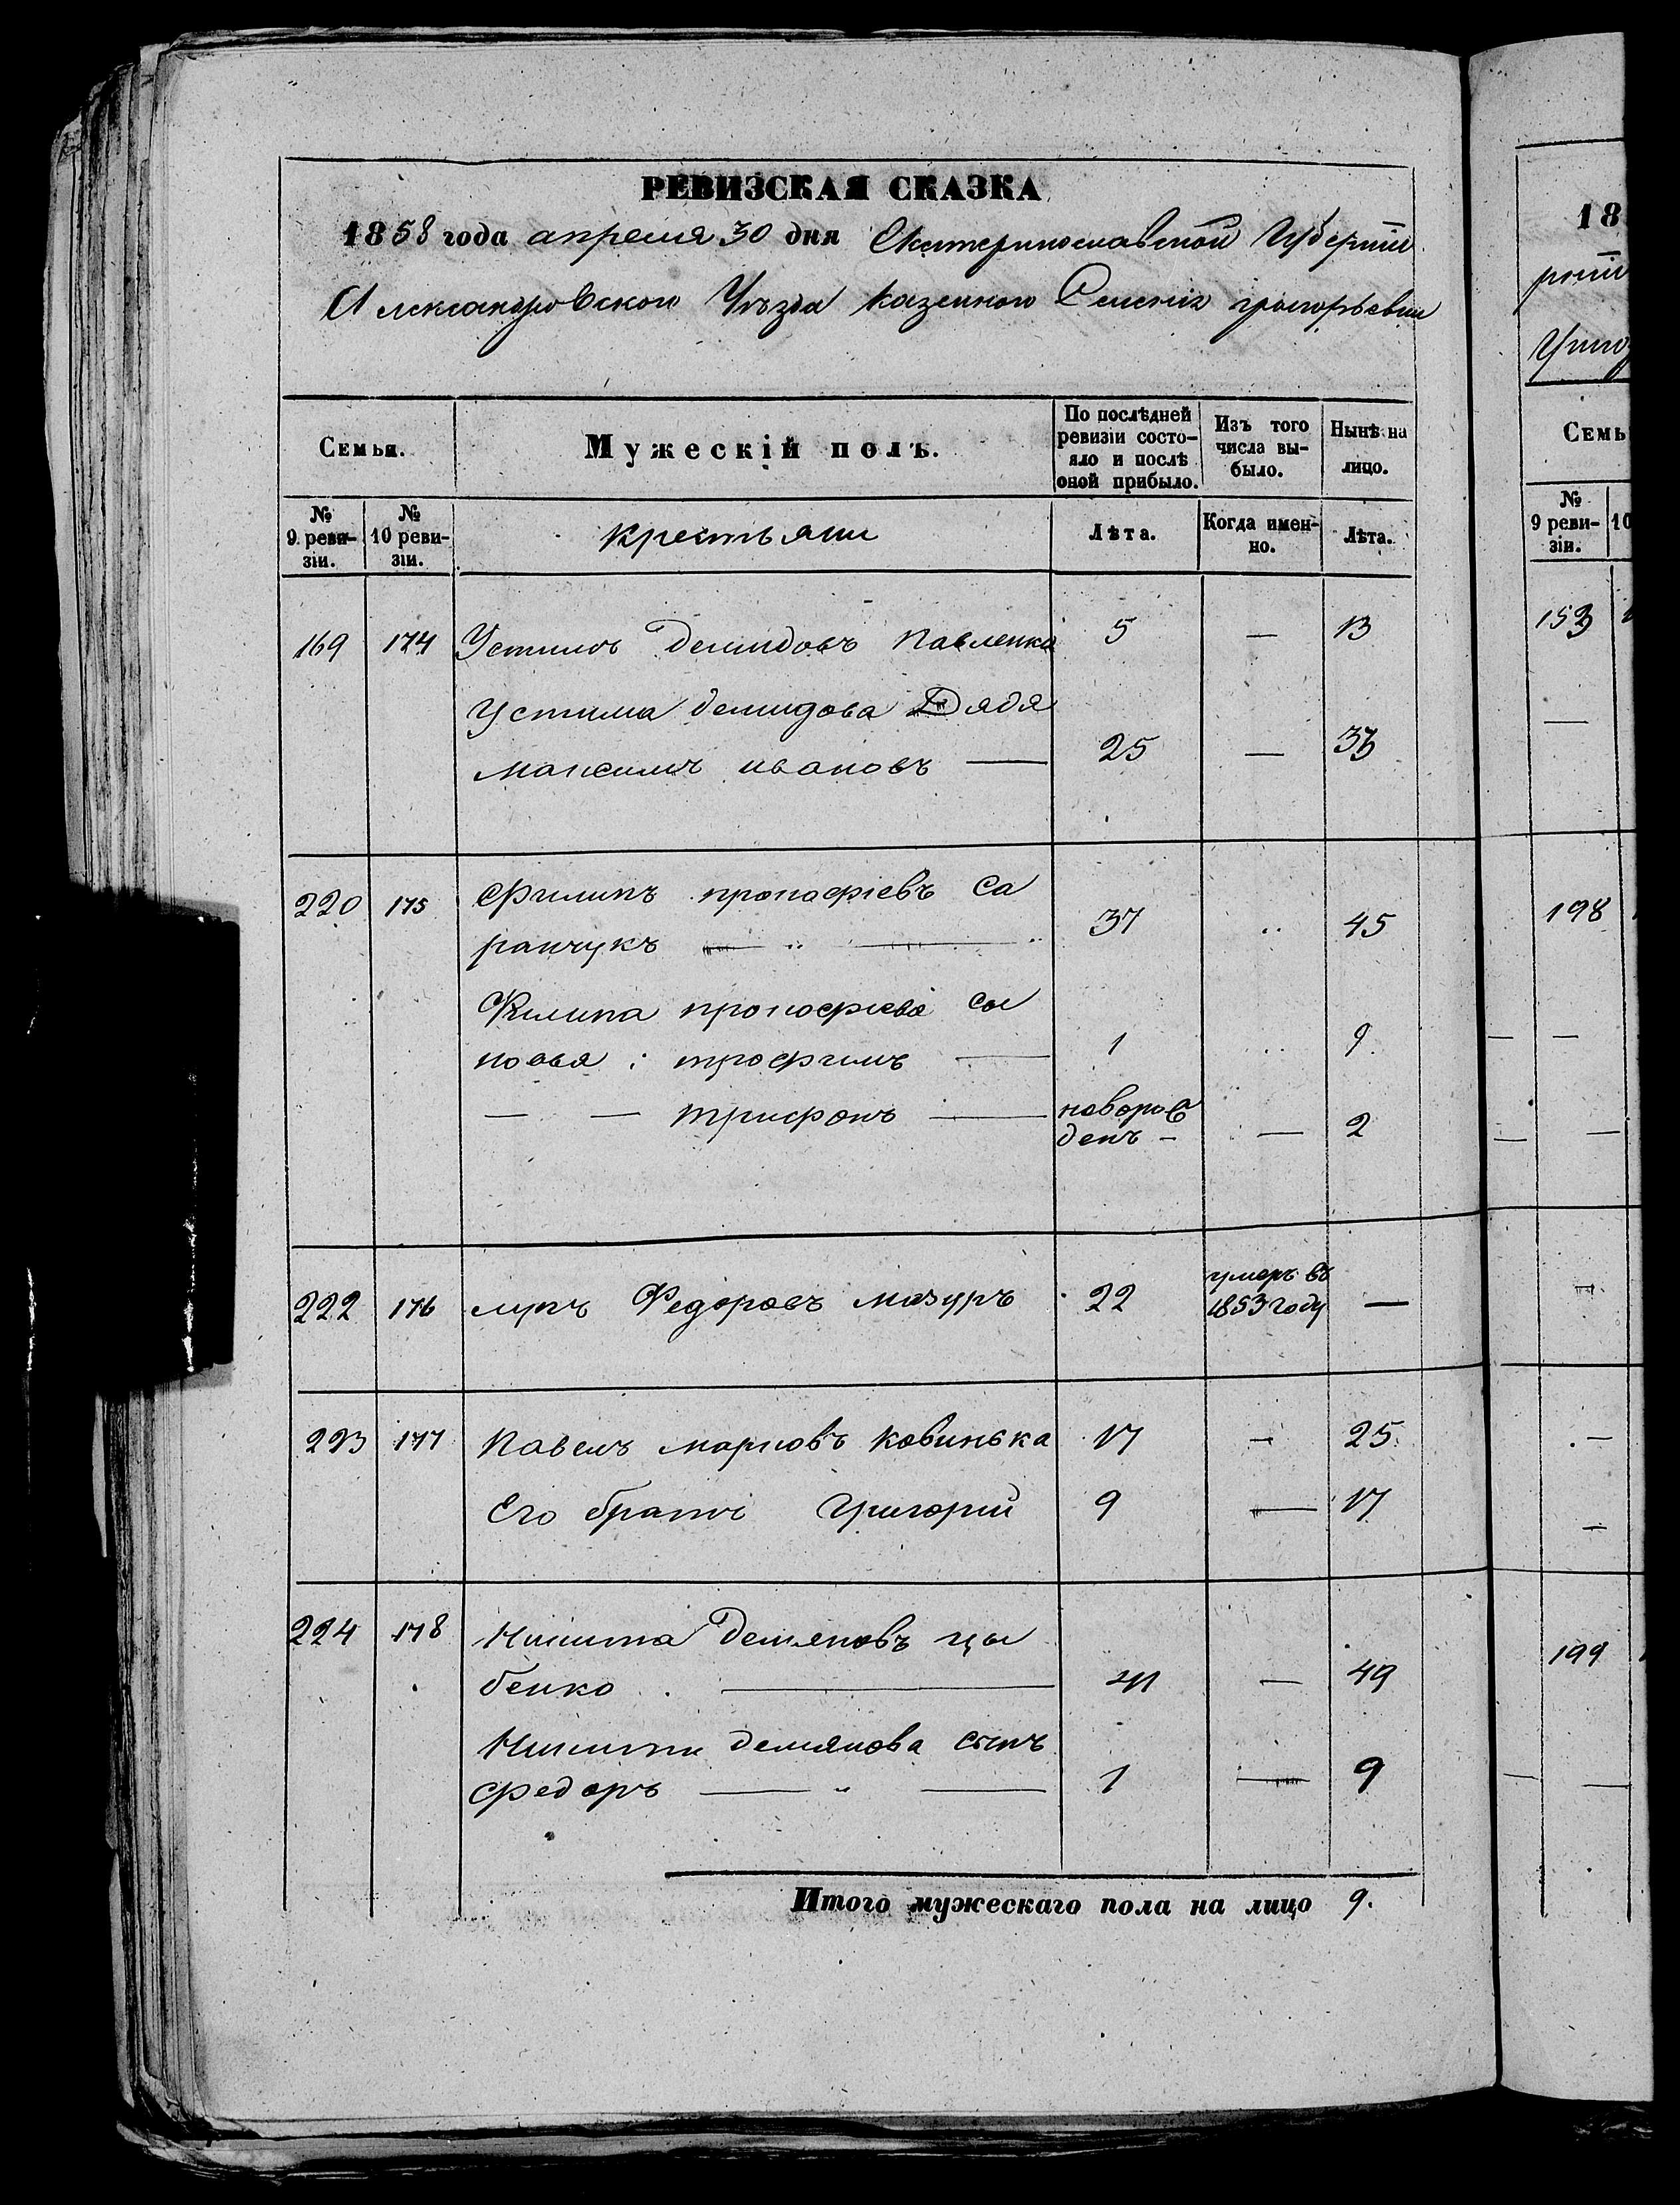 РЕВИЗСКАЯ СКАЗКА
1858 года апреля 30 дня Екатеринославской Губерніи
Александровского Уѣзда казенного Селенія григорьевки
Семьи. Мужескій полъ. По послѣдней ревизіи состо-яло и послѣ оной прибыло. Изъ того числа вы-было. Нынѣ на лицо.
№ 9 реви-зіи. № 10 реви-зіи. крестьяни Лѣта. Когда имен-но. Лѣта.
169 174 Устимъ Демидовъ Павленко 5 — 13
Устима демидова Дядя
Максимъ ивановъ — 25 — 33
220 175 Филипъ прокофіевъ Са
ранчукъ — „ — „ 37 „ 45
Филипа прокофіева сы
новья : трофимъ — 1 „ 9.
— — трифонъ — новорож
денъ – — 2
222 176 лукъ Федоровъ мазуръ 22 умеръ въ
1853 году —
223 177 Павелъ марковъ ковинька 17 — 25
Его братъ Григорій 9 — 17
224 178 Никита Демяновъ цы
бенко . — 41 — 49
Никиты демянова сынъ
федоръ — „ — 1 — 9
Итого мужескаго пола на лицо 9.
18
рніи
Семь
№ 9 реви-зіи. 10
153
198
199